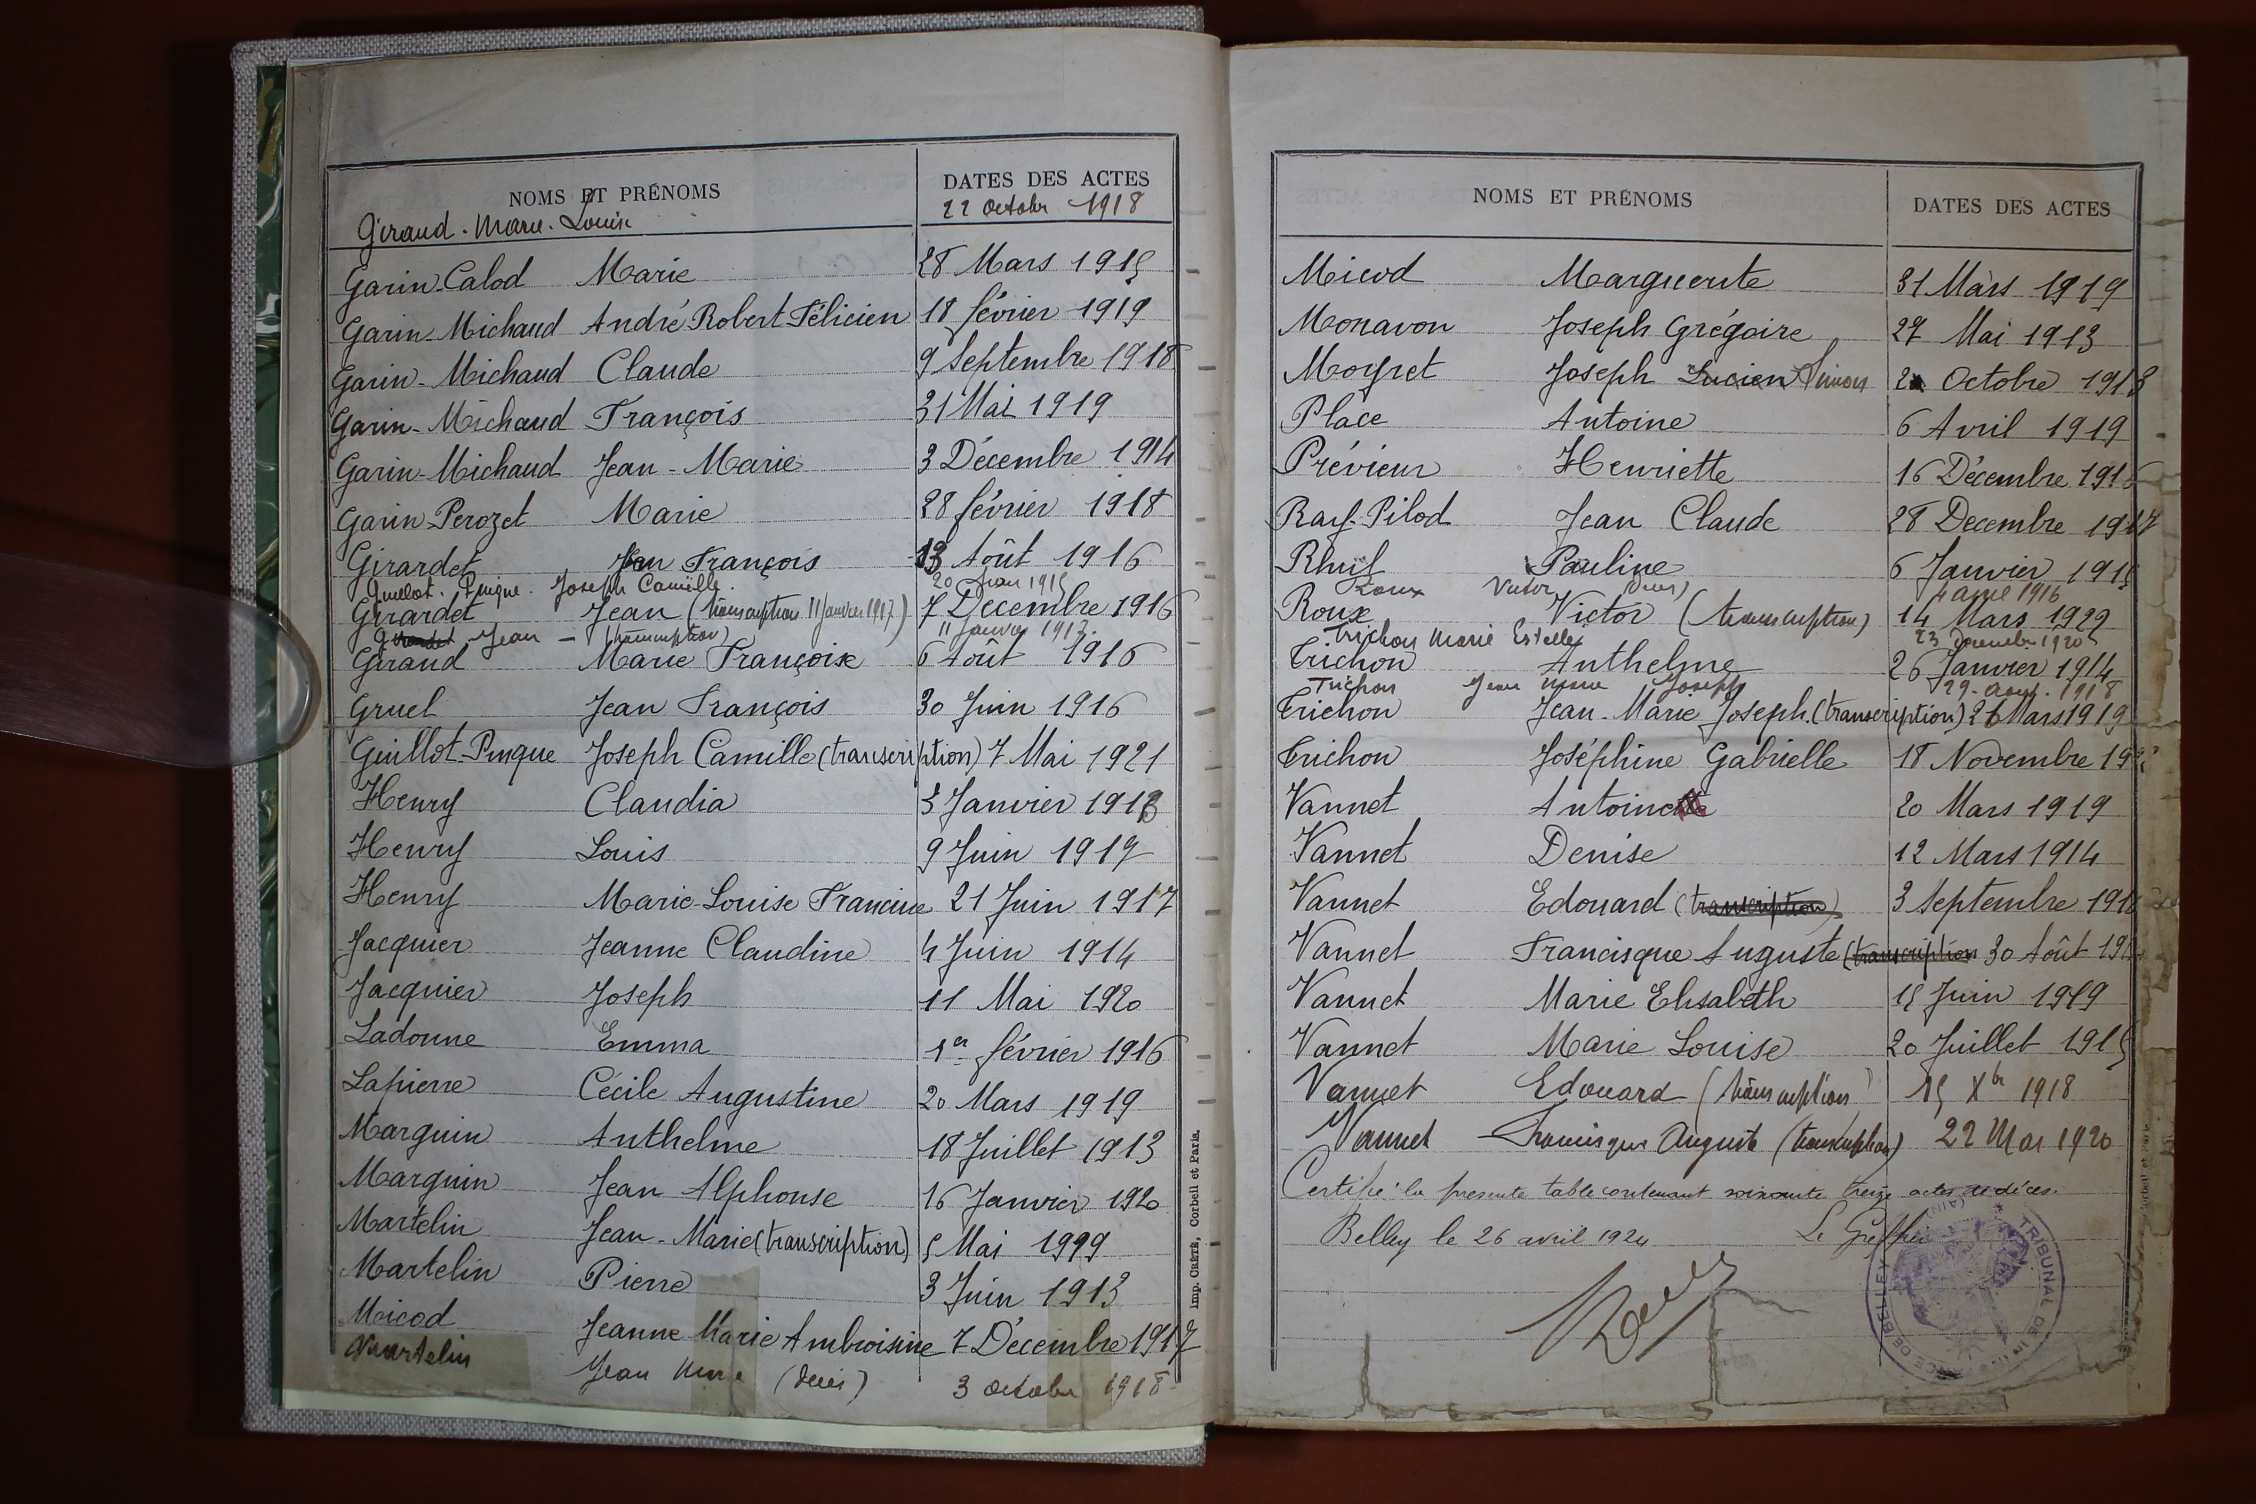 NOMS ET PRÉNOMS DATES DES ACTES
Giraud. Marie. Louise 22 Octobre 1918
Garin-Calod Marie 28 Mars 1915
Garin-Michaud André Robert Félicien 18 février 1919
Garin-Michaud Claude 9 Septembre 1918
Garin-Michaud François 31 Mai 1919
Garin-Michaud Jean-Marie 3 Décembre 1914
Garin-Perozet Marie 28 février 1918
Girardet Jean François 13 Août 1916
Guillot. Pingue. Joseph Camille. 20 1915
Girardet Jean (transcription 11 Janvier 1917) 7 Décembre 1916
Girardet Jean - (transcription) 11 Janvier 1917.
Giraud Marie Françoise 6 Août 1916
Gruel Jean François 30 Juin 1916
Guillot-Pingue Joseph Camille (transcription) 7 Mai 1921
Henry Claudia 3 Janvier 1913
Henry Louis 9 Juin 1917
Henry Marie-Louise Francine 21 Juin 1917
Jacquier Jeanne Claudine 4 Juin 1914
Jacquier Joseph 11 Mai 1920
Ladonne Emma 1er février 1916
Lapierre Cécile Augustine 20 Mars 1919
Marguin Anthelme 18 Juillet 1913
Marguin Jean Alphonse 16 Janvier 1920
Martelin Jean-Marie (transcription) 5 Mai 1919
Martelin Pierre 3 Juin 1913
Micod Jeanne Marie Ambroisine 7 Décembre 1917
Martelin Jean Marie (décès) 3 octobre 1918
Imp. CRÉTÉ, Corbeil et Paris.
NOMS ET PRÉNOMS DATES DES ACTES
Micod Marguerite 31 Mars 1919
Monavon Joseph Grégoire 27 Mai 1913
Moyret Joseph Lucien Simon Octobre 1918
Place Antoine 6 Avril 1919
Prévieur Henriette 16 Décembre
Ray-Pilod Jean Claude 28 Décembre 1917
Rhuil Pauline 6 Janvier 1915
Roux Victor (décès) 4 avril 1916
Roux Victor (transcription) 14 Mars 1922
Trichon Marie Estelle 23 Décembre 1920
Trichon Anthelme 26 Janvier 1914
Trichon Jean Marie Joseph 29. Aout. 1918
Trichon Jean-Marie Joseph (transcription) 26 Mars 1919
Trichon Joséphine Gabrielle 18 Novembre
Vannet Antoinette 20 Mars 1919
Vannet Denise 12 Mars 1914
Vannet Edouard (transcription) 3 Septembre
Vannet Francisque Auguste (transcription 30 Août
Vannet Marie Elisabeth 15 Juin 1919
Vannet Marie Louise 20 Juillet 1915
Vannet Edouard (transcription) 15 Xbre 1918
Vannet Francisque Auguste (transcription) 22 Mai 1920
Certifié la présente table contenant soixante treize actes de décès.
Belley le 26 avril 1924 Le Greffier
TRIBUNAL DE 1re INSTANCE DE BELLEY (AIN)